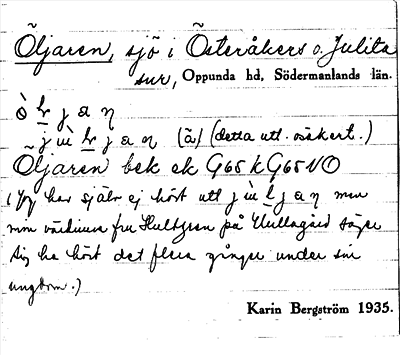 Öljaren, sjö i Österåkers o. Julita
snr, Oppunda hd, Södermanlands län.
ò l j a η
j ù l j a η (ã) (detta utt. osäkert.)
Öljaren bek ek G65 k G65 NO
(Jag har själv ej hört utt j ù l j a η men
min värdinna fru Hultgren på Ullagård säger
sig ha hört det flera gånger under sin
ungdom.)
Karin Bergström 1935.